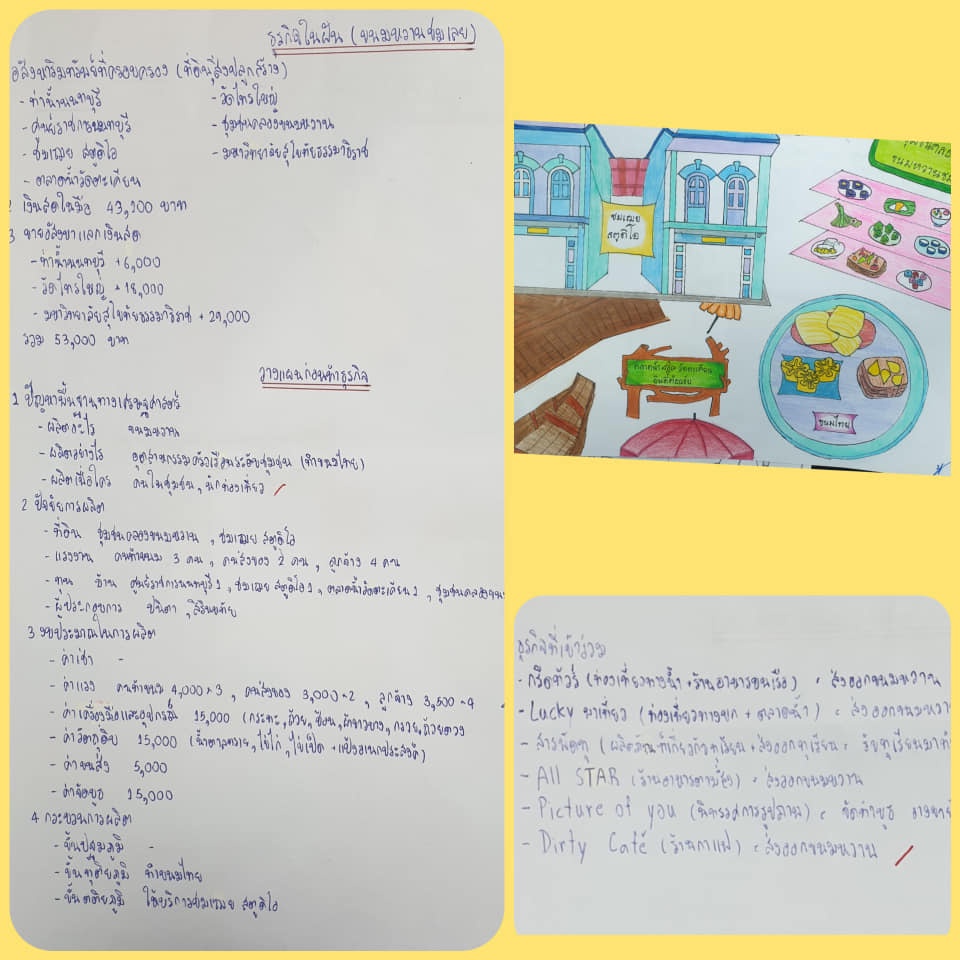 ธุรกิจในฝัน (ขนมหวานชมเลย)
อสังหาริมทรัพย์ที่ครอบครอง (ที่ดิน,สิ่งปลูกสร้าง)
- ท่าน้ำนนทบุรี
- วัดไทรใหญ่
- ศูนย์ราชการนนทบุรี
- ชุมชนคลองขนมหวาน
- ชมเฌย สตูดิโอ
- มหาวิทยาลัยสุโขทัยธรรมาธิราช
- ตลาดน้ำวัดตะเคียน
2 เงินสดในมือ 43,200 บาท
3 ขายอสังหาแลกเงินสด
- ท่าน้ำนนทบุรี +6,000
- วัดไทรใหญ่ +18,000
- มหาวิทยาลัยสุโขทัยธรรมาธิราช + 29,000
รวม 53,000 บาท
วางแผนก่อนทำธุรกิจ
1 ปัญหาพื้นฐานทางเศรษฐศาสตร์
- ผลิตอะไร ขนมหวาน
- ผลิตอย่างไร อุตสาหกรรมครัวเรือนระดับชุมชน (ทำขนมไทย)
- ผลิตเพื่อใคร คนในชุมชน, นักท่องเที่ยว
2 ปัจจัยการผลิต
- ที่ดิน ชุมชนคลองขนมหวาน , ชมเฌย สตูดิโอ
- แรงงาน คนทำขนม 3 คน , คนส่งของ 2 คน , ลูกจ้าง 4 คน
- ทุน บ้าน ศูนย์ราชการนนทบุรี 1 , ชมเฌย สตูดิโอ 1 , ตลาดน้ำวัดตะเคียน 1 , ชุมชนคลองขนม
- ผู้ประกอบการ ปนิตา , สิรินททัย
3 งบประมาณในการผลิต
- ค่าเช่า -
- ค่าแรง คนทำขนม 4,000×3 , คนส่งของ 3,000×2 , ลูกจ้าง 3,500×4
- ค่าเครื่องมือและอุปกรณ์ 15,000 (กระทะ, ถ้วย, ช้อน, ผ้าขาวบาง, กรวย, ถ้วยตวง
- ค่าวัตถุดิบ 15,000 (น้ำตาลทราย, ไข่ไก่, ไข่เป็ด +แป้งอเนกประสงค์)
- ค่าขนส่ง 5,000
- ค่าจัดบูธ 15,000
4 กระบวนการผลิต
- ขั้นปฐมภูมิ -
- ขั้นทุติยภูมิ ทำขนมไทย
- ขั้นตติยภูมิ ให้บริการชมเฌย สตูดิโอ
ชมเฌย
สตูดิโอ
ชุมชนคลอง
ขนมหวาน
ตลาดน้ำ วัดตะเคียน
ยินดีต้อนรับ
ขนมไทย
ธุรกิจที่เข้าร่วม
- กรีดทัวร์ (ท่องเที่ยวทางน้ำ +ร้านอาหารบนเรือ) = ส่งออกขนมหวาน
- Lucky พาเที่ยว (ท่องเที่ยวทางบก + ตลาดน้ำ) = ส่งออกขนมหวา
- สารพัดทุ (ผลิตภัณฑ์เกี่ยวกับทุเรียน +ส่งออกทุเรียน = รับทุเรียนมาทำ
- All STAR (ร้านอาหารตามสั่ง) = ส่งออกขนมหวาน
- Picture of you (นิทรรศการรูปภาพ) = จัดทำบูธ
- Dirty Café (ร้านกาแฟ) = ส่งออกขนมหวาน